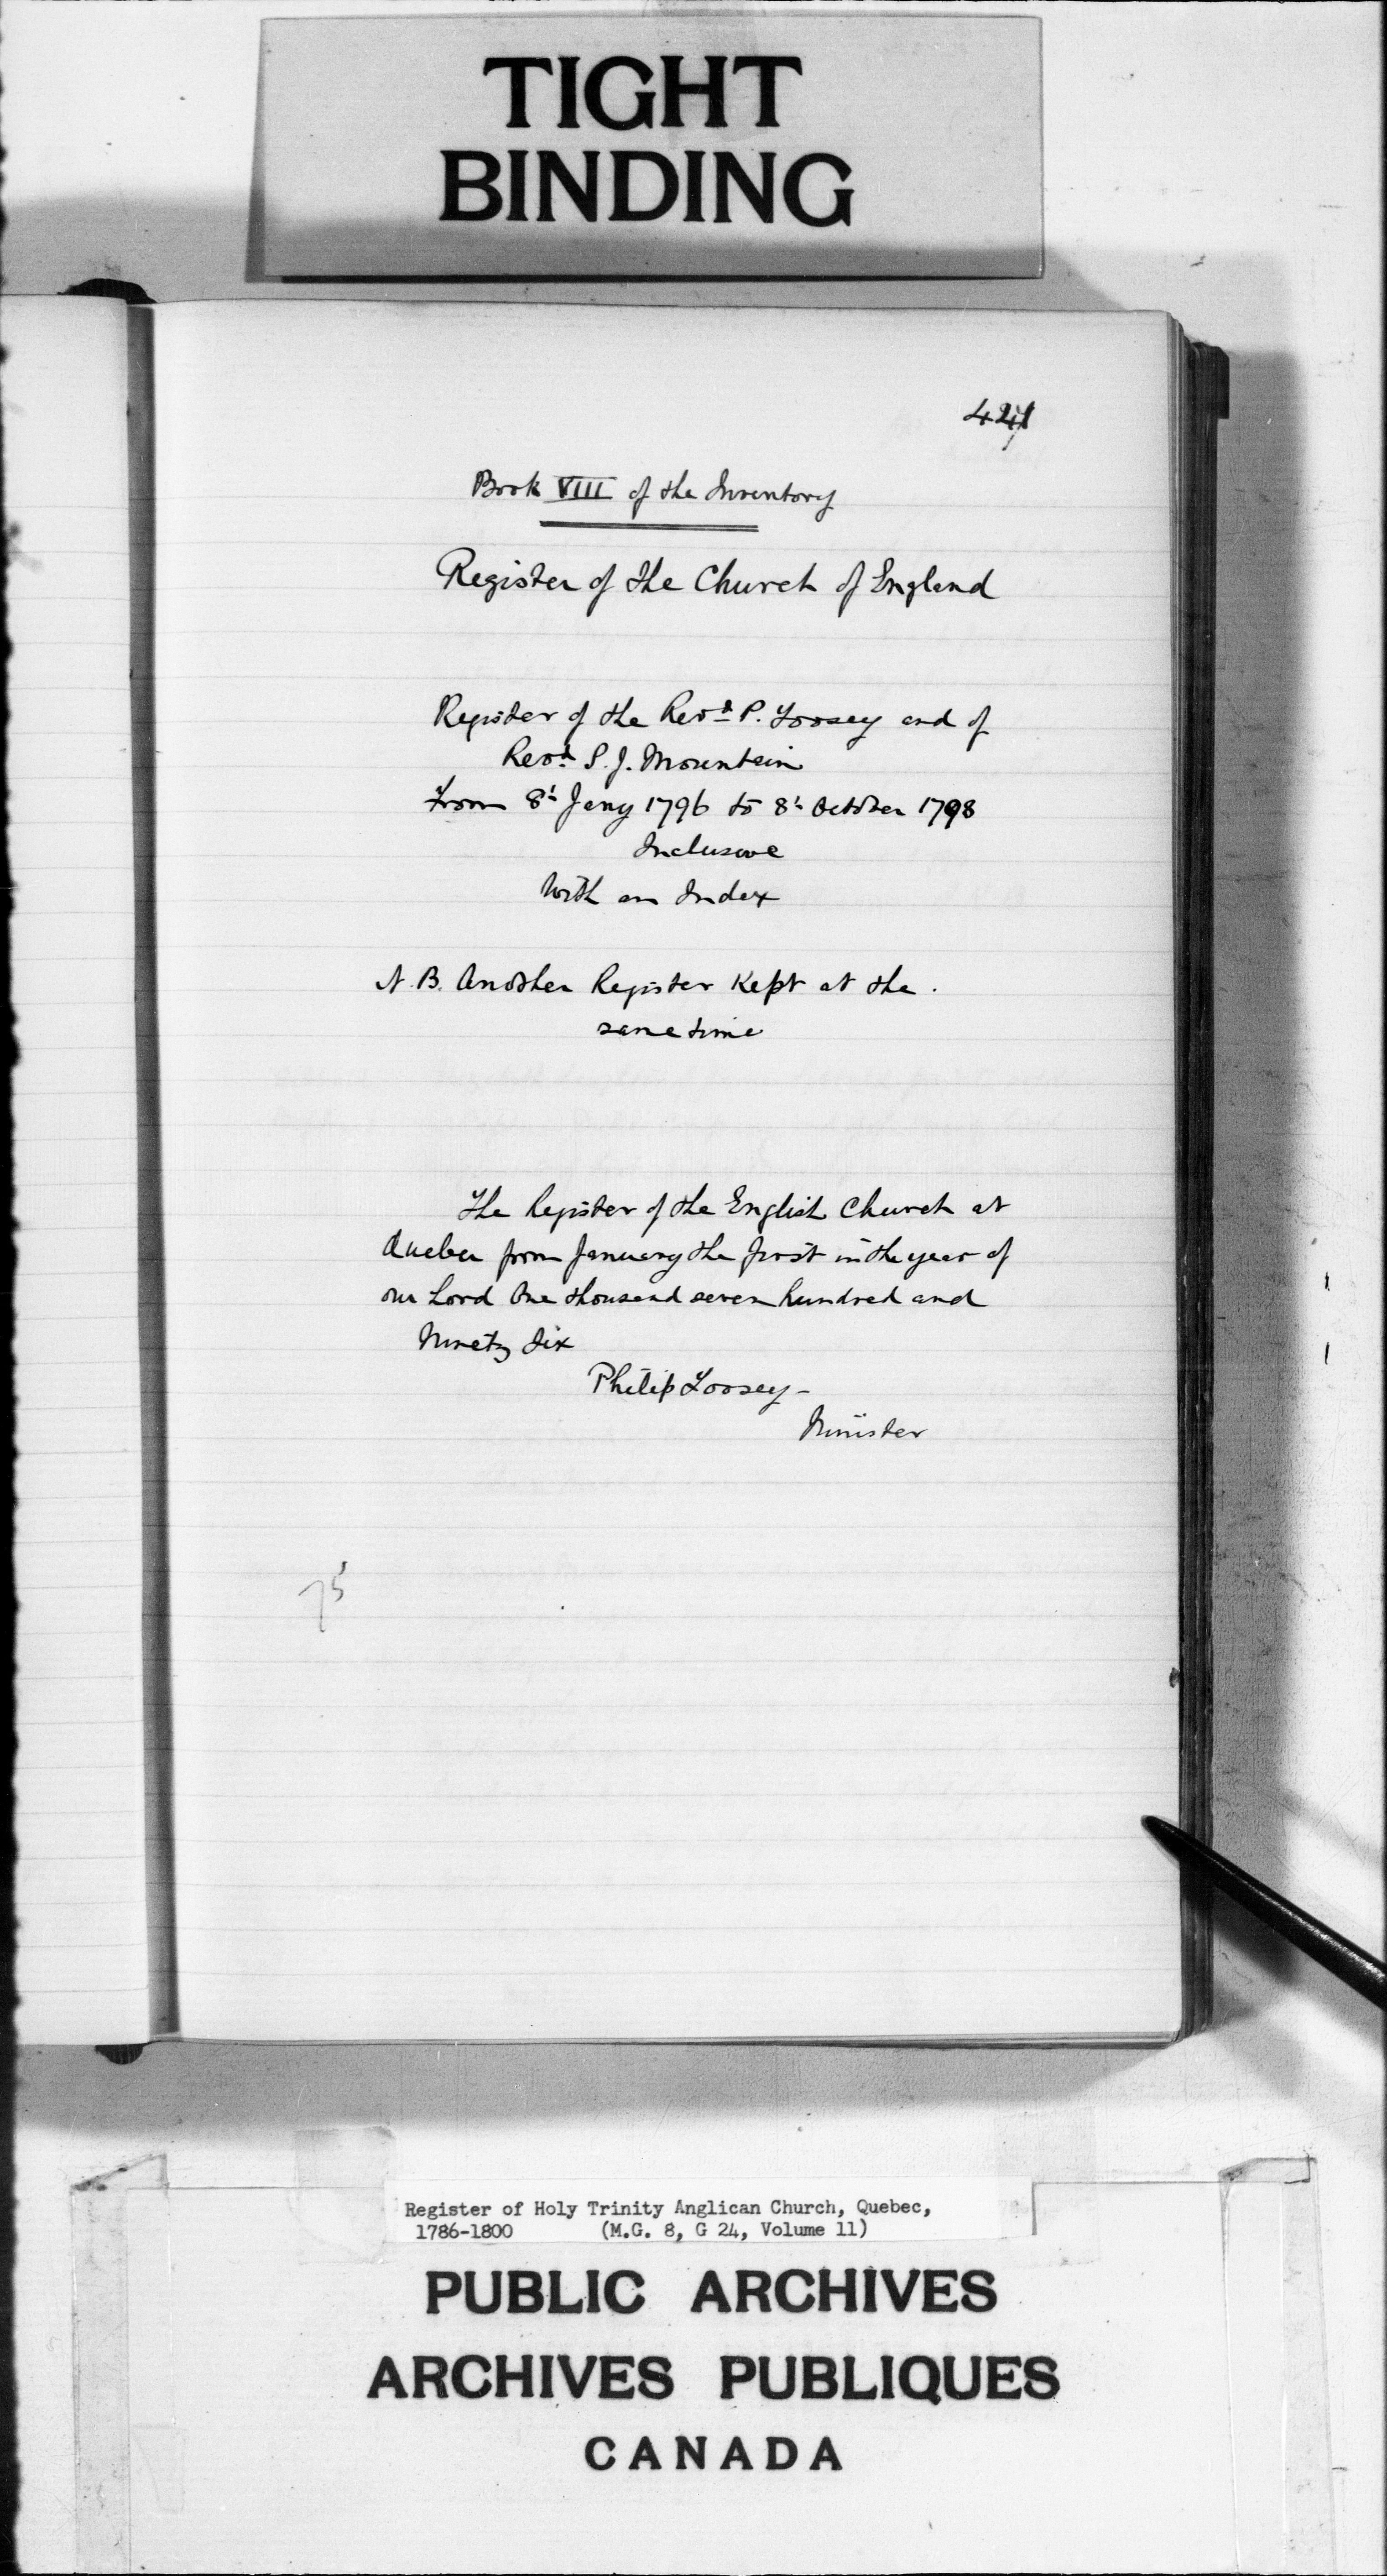 TIGHT
BINDING
Book VIII of the Inventory
Register of the Church of England
Register of the Revd P. Toosey and of
Revd S. J. Mountain
From 8t Jany 1796 to 8t October 1798
Inclusive
With an Index
N. B. Another Register Kept at the
same time
The Register of the English Church at
Quebec from January the first in the year of
our Lord One thousand seven hundred and
Ninety Six
Philip Toosey -
Minister
75
Register of Holy Trinity Anglican Church, Quebec,
1786-1800 (M.G. 8, G 24, Volume 11)
PUBLIC ARCHIVES
ARCHIVES PUBLIQUES
CANADA